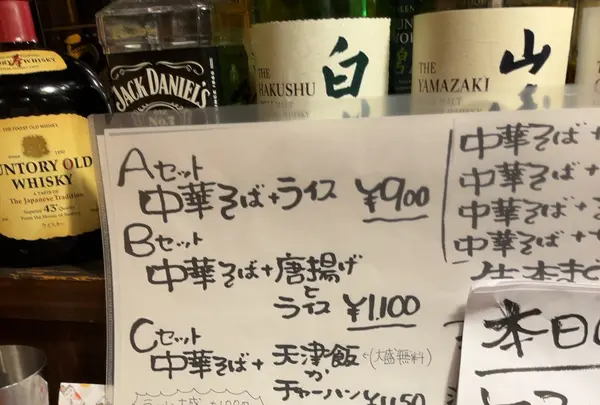 THE FINEST OLD WHISKY
SUNTORY OLD
WHISKY
A TASTE OF
The Japanese Tradition
Superior 43°Quality
ウイスキー
JACK DANIEL'S
THE
HAKUSHU
白
THE
YAMAZAKI
山
Aセット
中華そば+ライス ¥900
Bセット
中華そば+唐揚げ
と
ライス ¥1,100
Cセット
中華そば+天津飯←(大盛無料)
か
チャーハン ¥1,150
中華そば+
中華そば+
中華そば+
中華そば+
本日